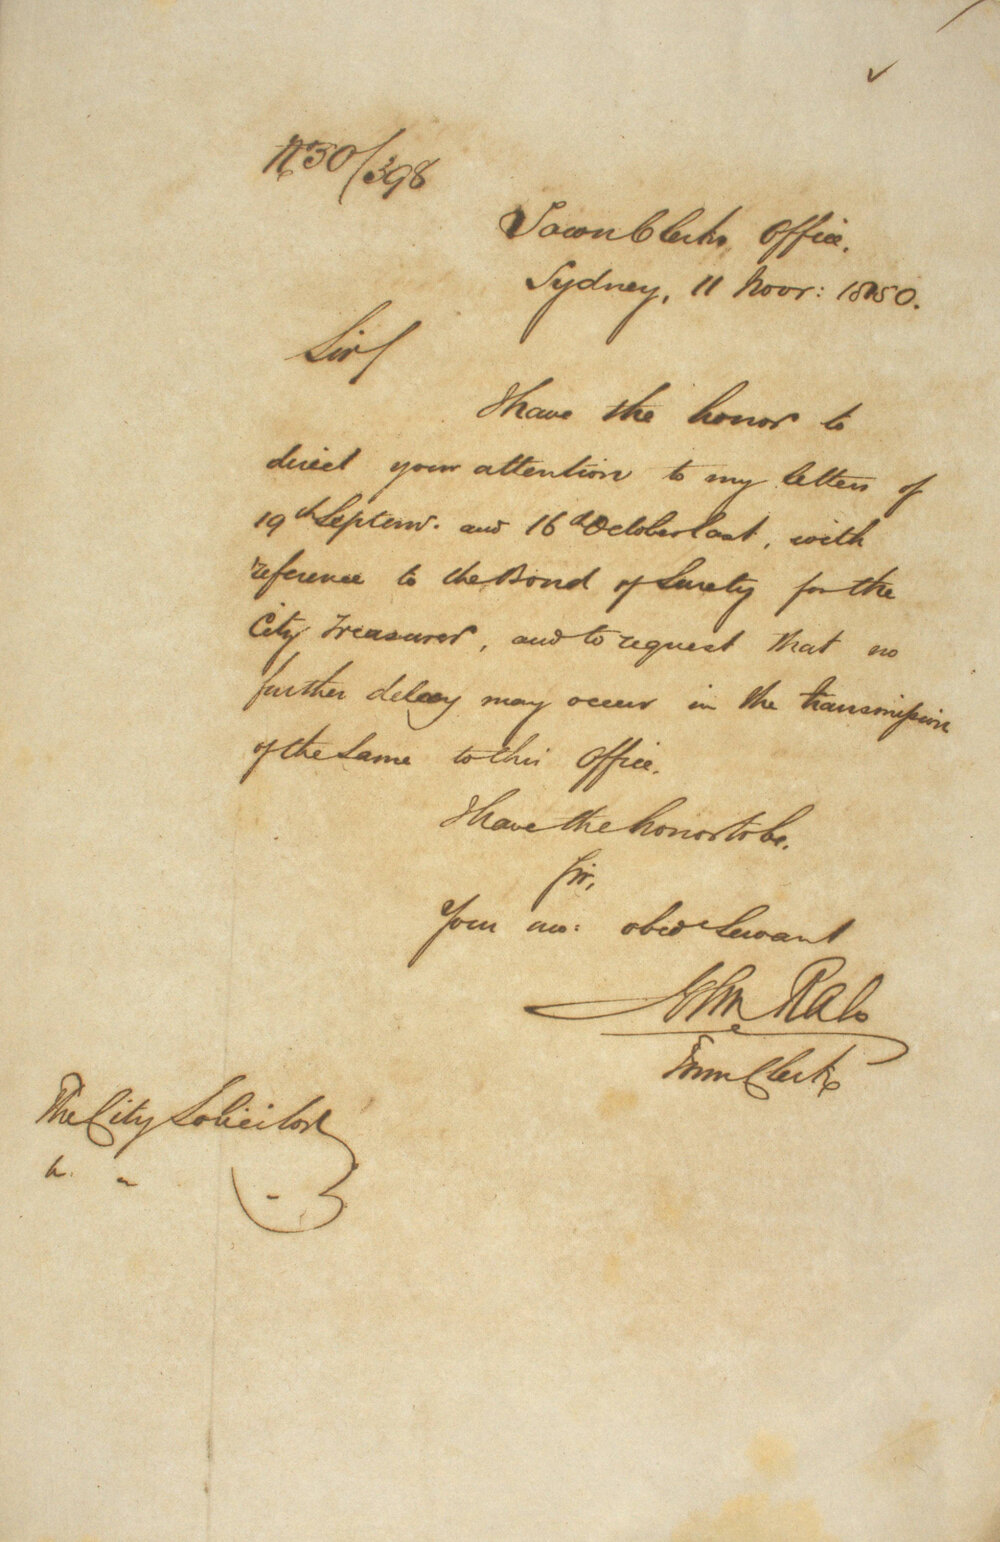 No 50/398
Town Clerks Office.
Sydney, 11 Novr: 1850.
Sir/
I have the honor to
direct your attention to my letters of
19th Septemr. and 16th October last, with
reference to the Bond of Surety for the
City Treasurer, and to request that no
further delay may occur in the transmission
of the same to this Office.
I have the honor to be.
Sir,
Your mo: obed Servant
John Rae
Town Clerk
The City Solicitor